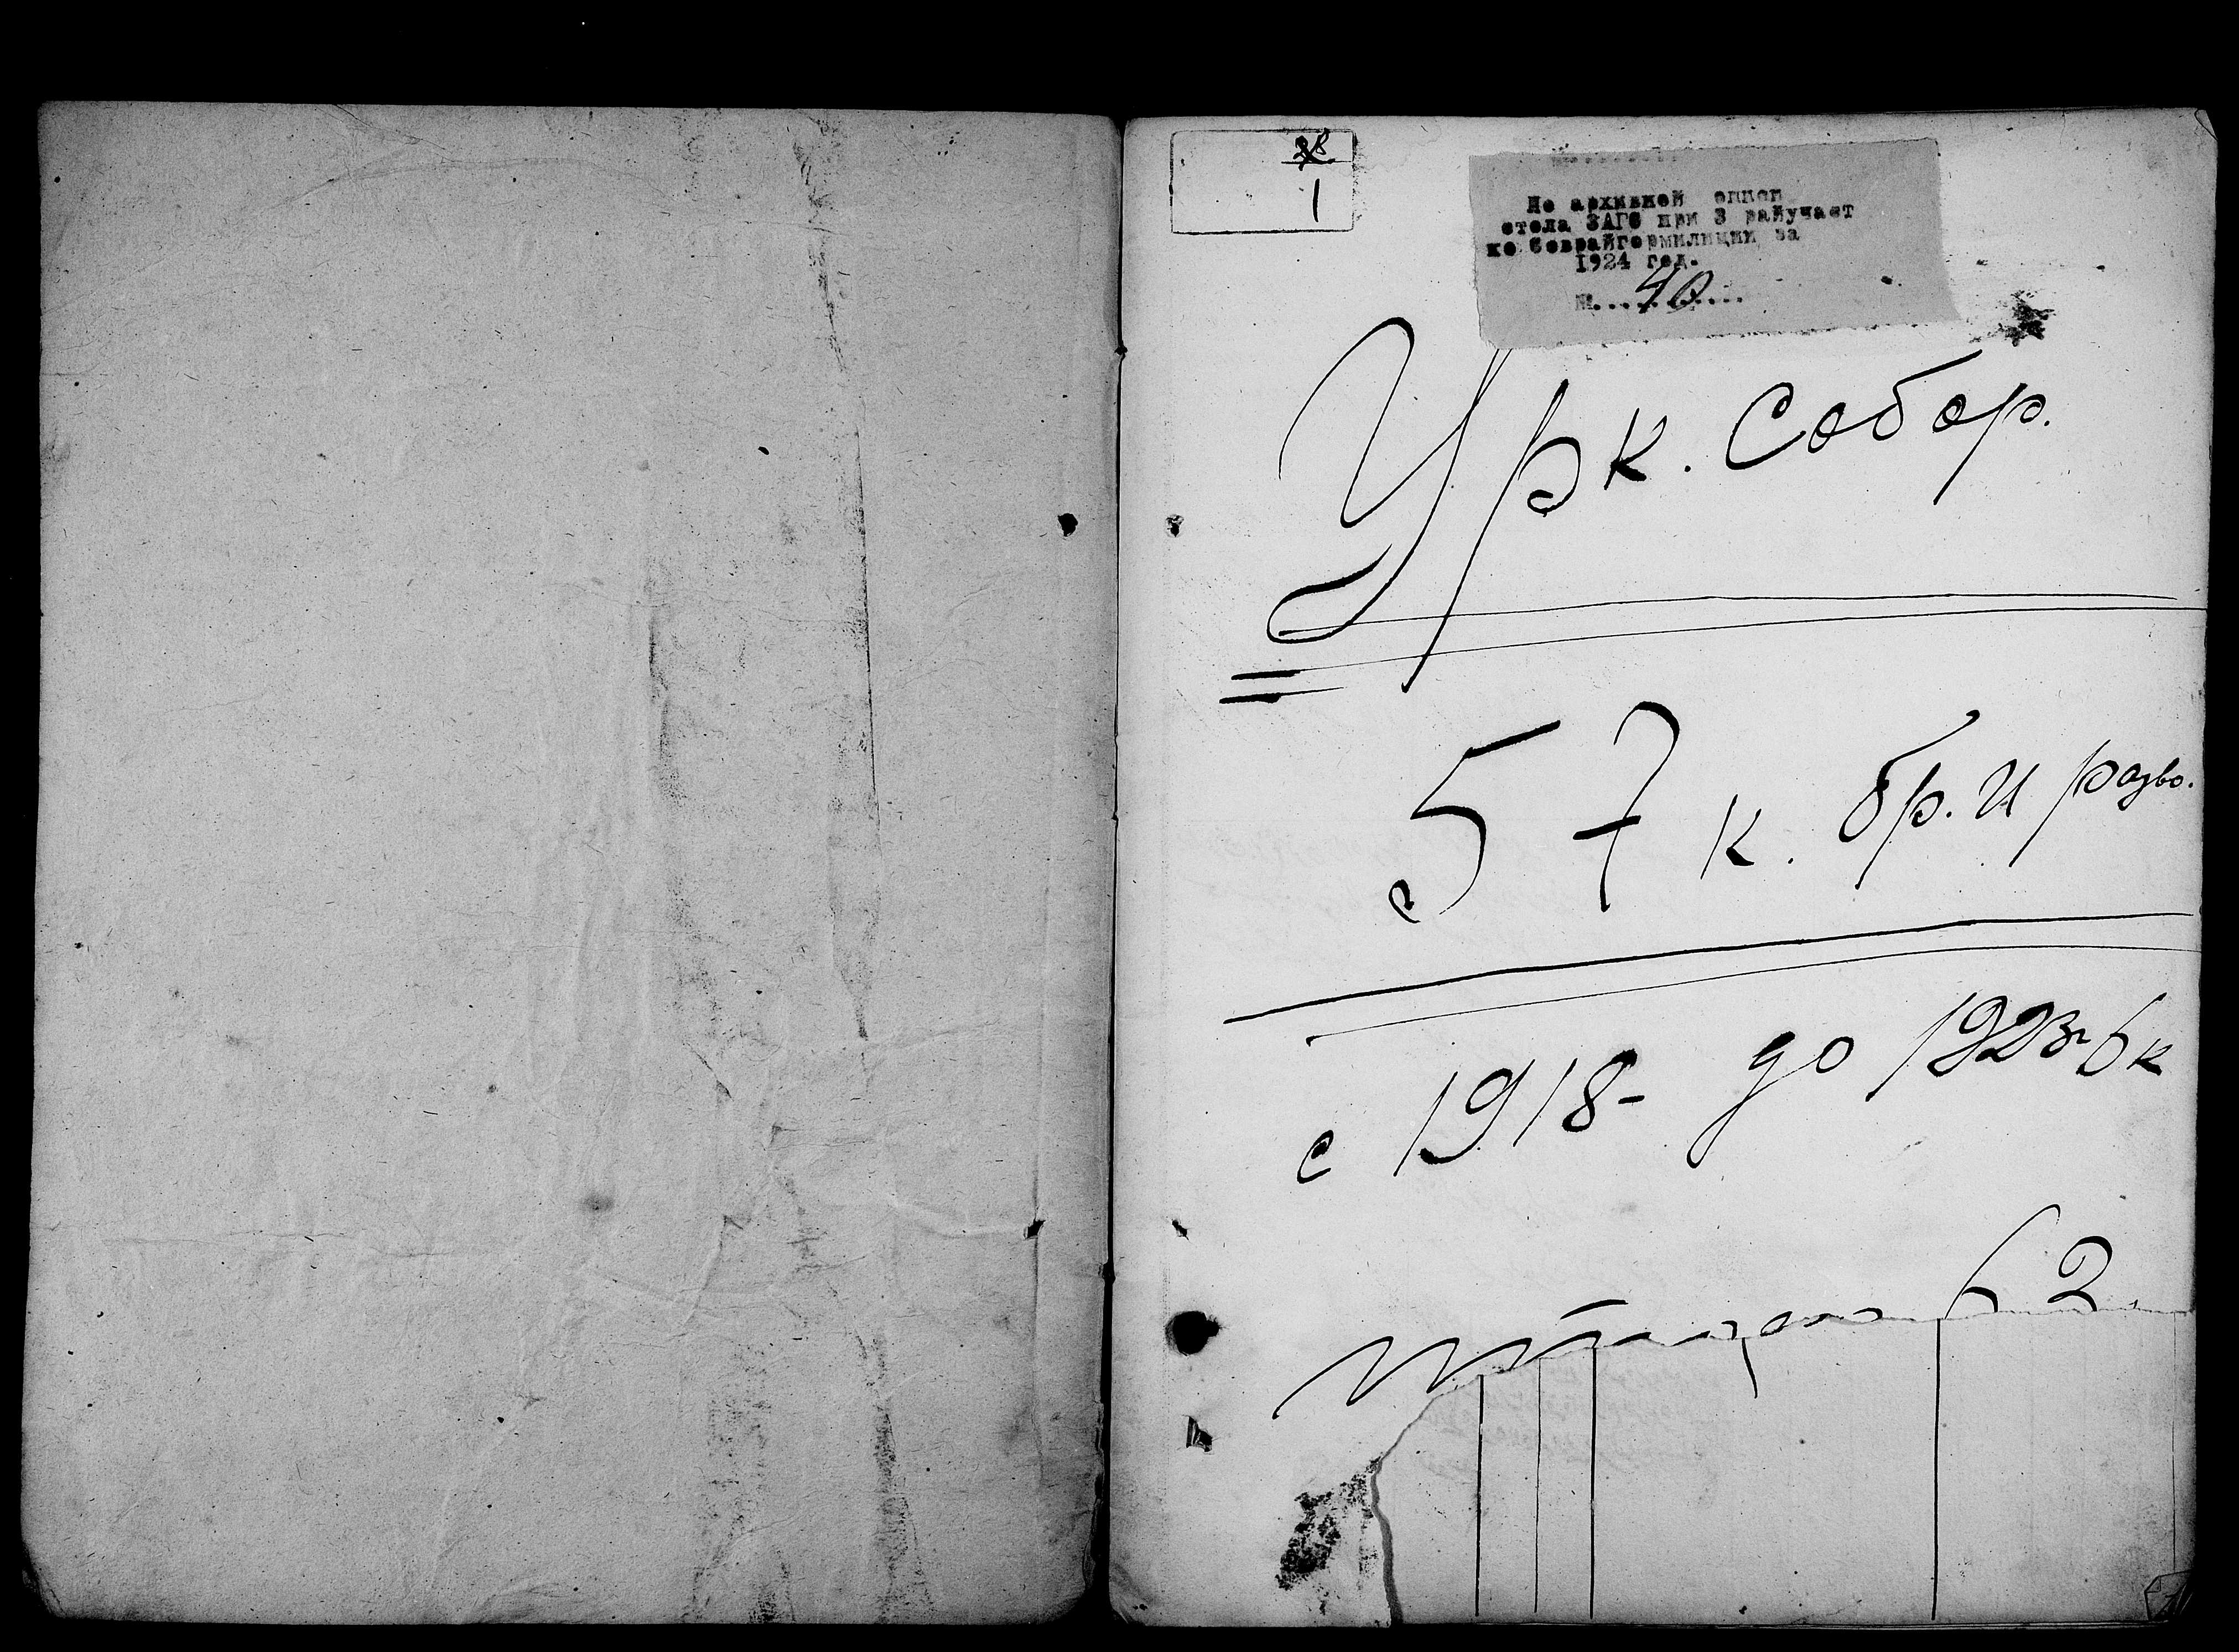 28
1
По архивной описи
стола ЗАГС при 3 райучаст
ке Севрайгормилиции за
1924 год.
№. 40
Црк. Собор.
57 к. бр. и разво.
с 1918- до 1923 г 6 к
62